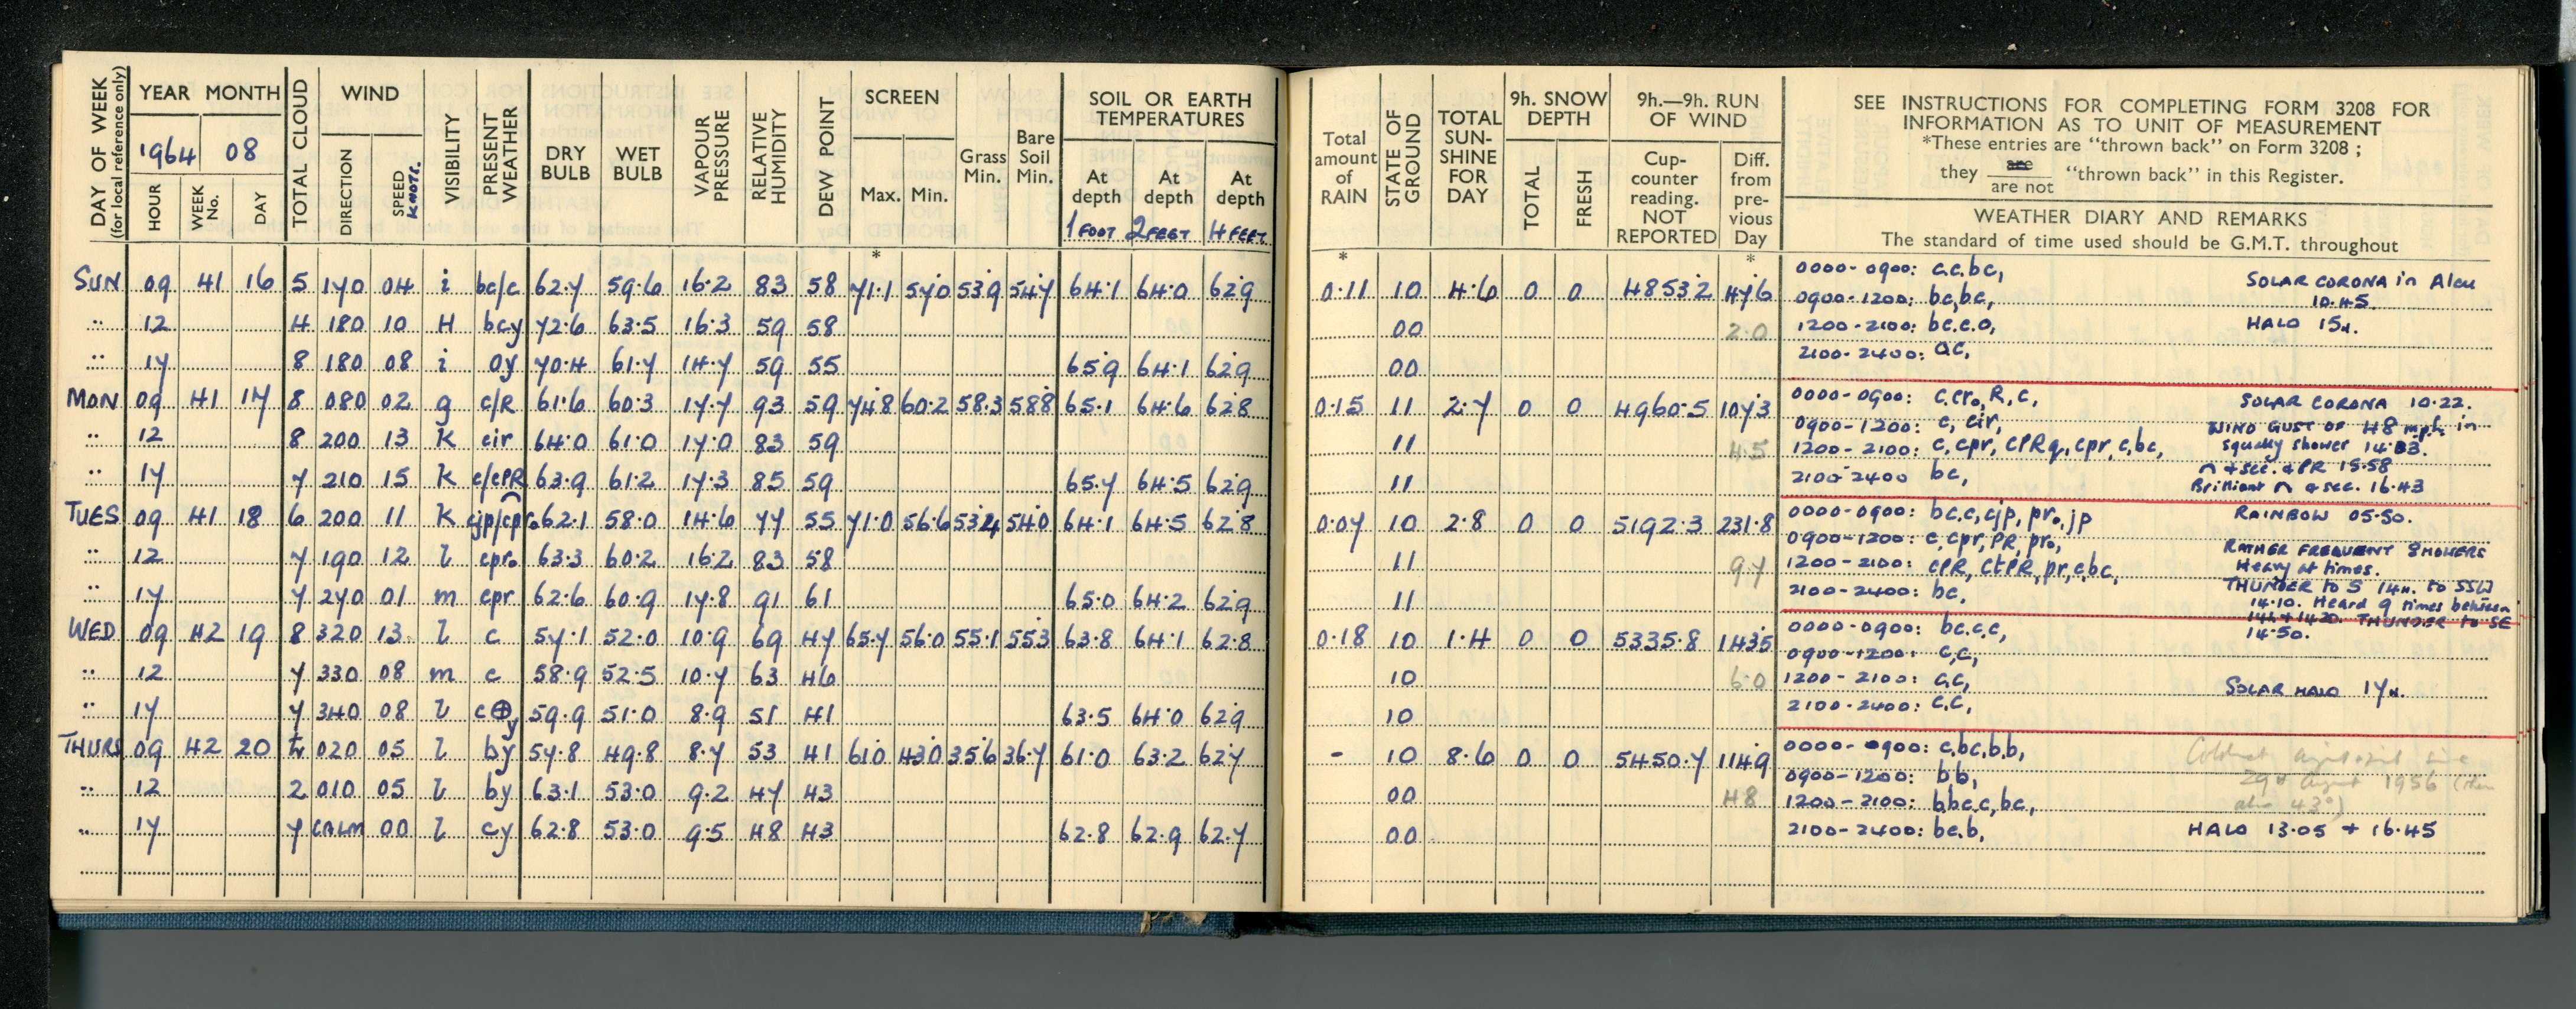 DAY OF WEEK
(for local reference only)
YEAR MONTH
1964 08
HOUR WEEK No. DAY
TOTAL CLOUD
WIND
DIRECTION SPEED KNOTS.
VISIBILITY
PRESENT WEATHER
DRY BULB
WET BULB
VAPOUR PRESSURE
RELATIVE HUMIDITY
DEW POINT
SCREEN
Max. Min.
Grass Min.
Bare Soil Min.
SOIL OR EARTH TEMPERATURES
At depth At depth At depth
1 FOOT 2 FEET 4 FEET
Total amount of RAIN
STATE OF GROUND
TOTAL SUN-SHINE FOR DAY
9h. SNOW DEPTH
TOTAL FRESH
9h.—9h. RUN OF WIND
Cup-counter reading. NOT REPORTED
Diff. from pre-vious Day
SEE INSTRUCTIONS FOR COMPLETING FORM 3208 FOR
INFORMATION AS TO UNIT OF MEASUREMENT
*These entries are "thrown back" on Form 3208 ;
they are / are not "thrown back" in this Register.
WEATHER DIARY AND REMARKS
The standard of time used should be G.M.T. throughout
* * *
SUN 09 41 16 5 170 04 i bc/c 62.7 59.6 16.2 83 58 71.1 57.0 53.9 54.7 64.1 64.0 62.9 0.11 10 4.6 0 0 4853.2 47.6
12 4 180 10 4 bcy 72.6 63.5 16.3 59 58 00 2.0
17 8 180 08 i oy 70.4 61.7 14.7 59 55 65.9 64.1 62.9 00
0000-0900: c,c,bc, SOLAR CORONA in Alcu
0900-1200: bc,bc, 10.45.
1200-2100: bc.c.o, HALO 15h.
2100-2400: oc,
MON 09 41 17 8 080 02 g c/R 61.6 60.3 17.7 93 59 74.8 60.2 58.3 58.8 65.1 64.6 62.8 0.15 11 2.7 0 0 4960.5 107.3
12 8 200 13 k cir 64.0 61.0 17.0 83 59 11 4.5
17 7 210 15 k c/cPR 63.9 61.2 17.3 85 59 65.7 64.5 62.9 11
0000-0900: c,cro,R,c, SOLAR CORONA 10.22.
0900-1200: c, cir, WIND GUST OF 48 mph. in
1200-2100: c, cpr, CPRq, cpr, c,bc, squally shower
2100-2400 bc, ∩ + sec. & PR 15.58
Brilliant ∩ & sec. 16.43
TUES 09 41 18 6 200 11 k cjp/cpro 62.1 58.0 14.6 77 55 71.0 56.6 53.4 54.0 64.1 64.5 62.8 0.07 10 2.8 0 0 5192.3 231.8
12 7 190 12 l cpro 63.3 60.2 16.2 83 58 11 9.7
17 7 270 01 m cpr 62.6 60.9 17.8 91 61 65.0 64.2 62.9 11
0000-0900: bc,c,cjp, pro,jp RAINBOW 05.50.
0900-1200: c,cpr, PR, pro, RATHER FREQUENT SHOWERS
1200-2100: cPR, CtPR, pr,c,bc, Heavy at times.
2100-2400: bc. THUNDER to S 14h. to SSW
14.10. Heard 9 times between
14h + 1420. THUNDER to SE
14.50.
WED 09 42 19 8 320 13 l c 57.1 52.0 10.9 69 47 65.7 56.0 55.1 55.3 63.8 64.1 62.8 0.18 10 1.4 0 0 5335.8 143.5
12 7 330 08 m c 58.9 52.5 10.7 63 46 10 6.0
17 7 340 08 l c⊕y 59.9 51.0 8.9 51 41 63.5 64.0 62.9 10
0000-0900: bc.c.c,
0900-1200: c,c,
1200-2100: c,c, SOLAR HALO 17h.
2100-2400: c.c,
THURS 09 42 20 tr 020 05 l by 57.8 49.8 8.7 53 41 61.0 43.0 35.6 36.7 61.0 63.2 62.7 - 10 8.6 0 0 5450.7 114.9
12 2 010 05 l by 63.1 53.0 9.2 47 43 00 4.8
17 7 CALM 00 l cy 62.8 53.0 9.5 48 43 62.8 62.9 62.7 00
0000-0900: c,bc,b,b, Coldest August since
0900-1200: b b, 29th August 1956 (then
1200-2100: b,bc,c,bc, also 43°)
2100-2400: bc,b, HALO 13.05 + 16.45